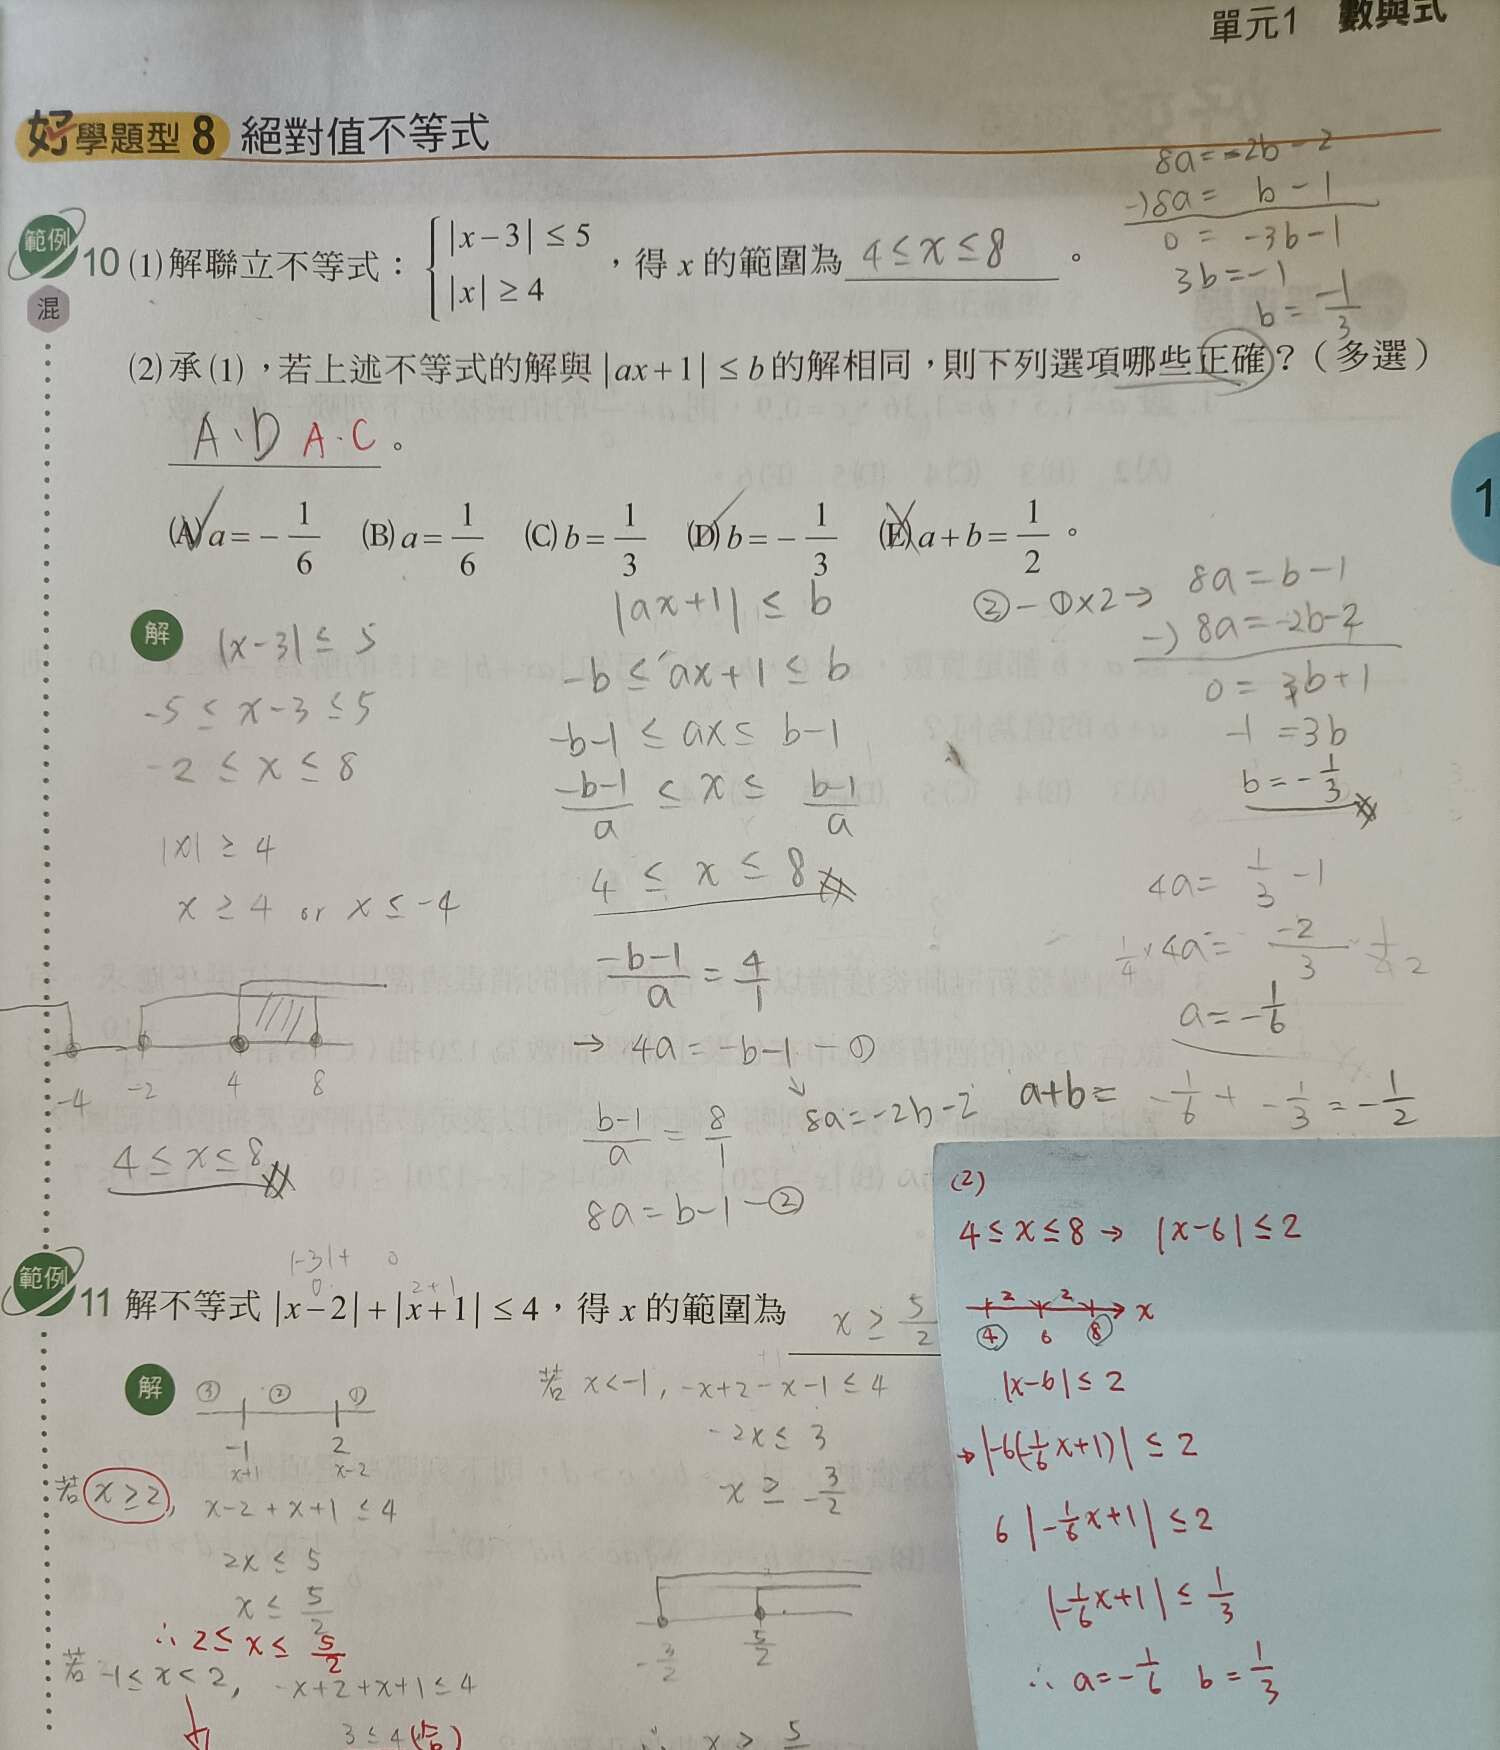 單元1 數與式
好學題型 8 絕對值不等式
8a = -2b - 2
-) 8a = b - 1
0 = -3b - 1
3b = -1
b = -1/3
範例 10 (1)解聯立不等式：{ |x-3| ≤ 5
|x| ≥ 4 ，得 x 的範圍為 4 ≤ x ≤ 8 。
混
(2)承(1)，若上述不等式的解與 |ax+1| ≤ b 的解相同，則下列選項哪些正確？（多選）
A、D A.C 。
(A) a = -1/6 (B) a = 1/6 (C) b = 1/3 (D) b = -1/3 (E) a + b = 1/2 。
1
解
|x-3| ≤ 5
-5 ≤ x-3 ≤ 5
-2 ≤ x ≤ 8
|x| ≥ 4
x ≥ 4 or x ≤ -4
-4 -2 4 8
4 ≤ x ≤ 8
|ax+1| ≤ b
-b ≤ ax+1 ≤ b
-b-1 ≤ ax ≤ b-1
-b-1/a ≤ x ≤ b-1/a
4 ≤ x ≤ 8
-b-1/a = 4/1
→ 4a = -b-1 -①
8a = -2b-2
b-1/a = 8/1
8a = b-1 -②
②-①×2→ 8a = b-1
-) 8a = -2b-2
0 = 3b+1
-1 = 3b
b = -1/3
4a = 1/3 - 1
1/4 × 4a = -2/3 × 1/4 2
a = -1/6
a+b = -1/6 + -1/3 = -1/2
(2)
4 ≤ x ≤ 8 → |x-6| ≤ 2
2 2
4 6 8 x
|x-6| ≤ 2
→ |-6(-1/6x+1)| ≤ 2
6 |-1/6x+1| ≤ 2
|-1/6x+1| ≤ 1/3
∴ a = -1/6 b = 1/3
|-3|+ 0
0 2+1
範例 11 解不等式 |x-2| + |x+1| ≤ 4，得 x 的範圍為 x ≥ 5/2
解
③ ② ①
-1 2
x+1 x-2
若 x ≥ 2, x-2+x+1 ≤ 4
2x ≤ 5
x ≤ 5/2
∴ 2 ≤ x ≤ 5/2
若 -1 ≤ x < 2, -x+2+x+1 ≤ 4
3 ≤ 4
若 x < -1, -x+2-x-1 ≤ 4
-2x ≤ 3
x ≥ -3/2
-3/2 5/2
∴ x ≥ 5